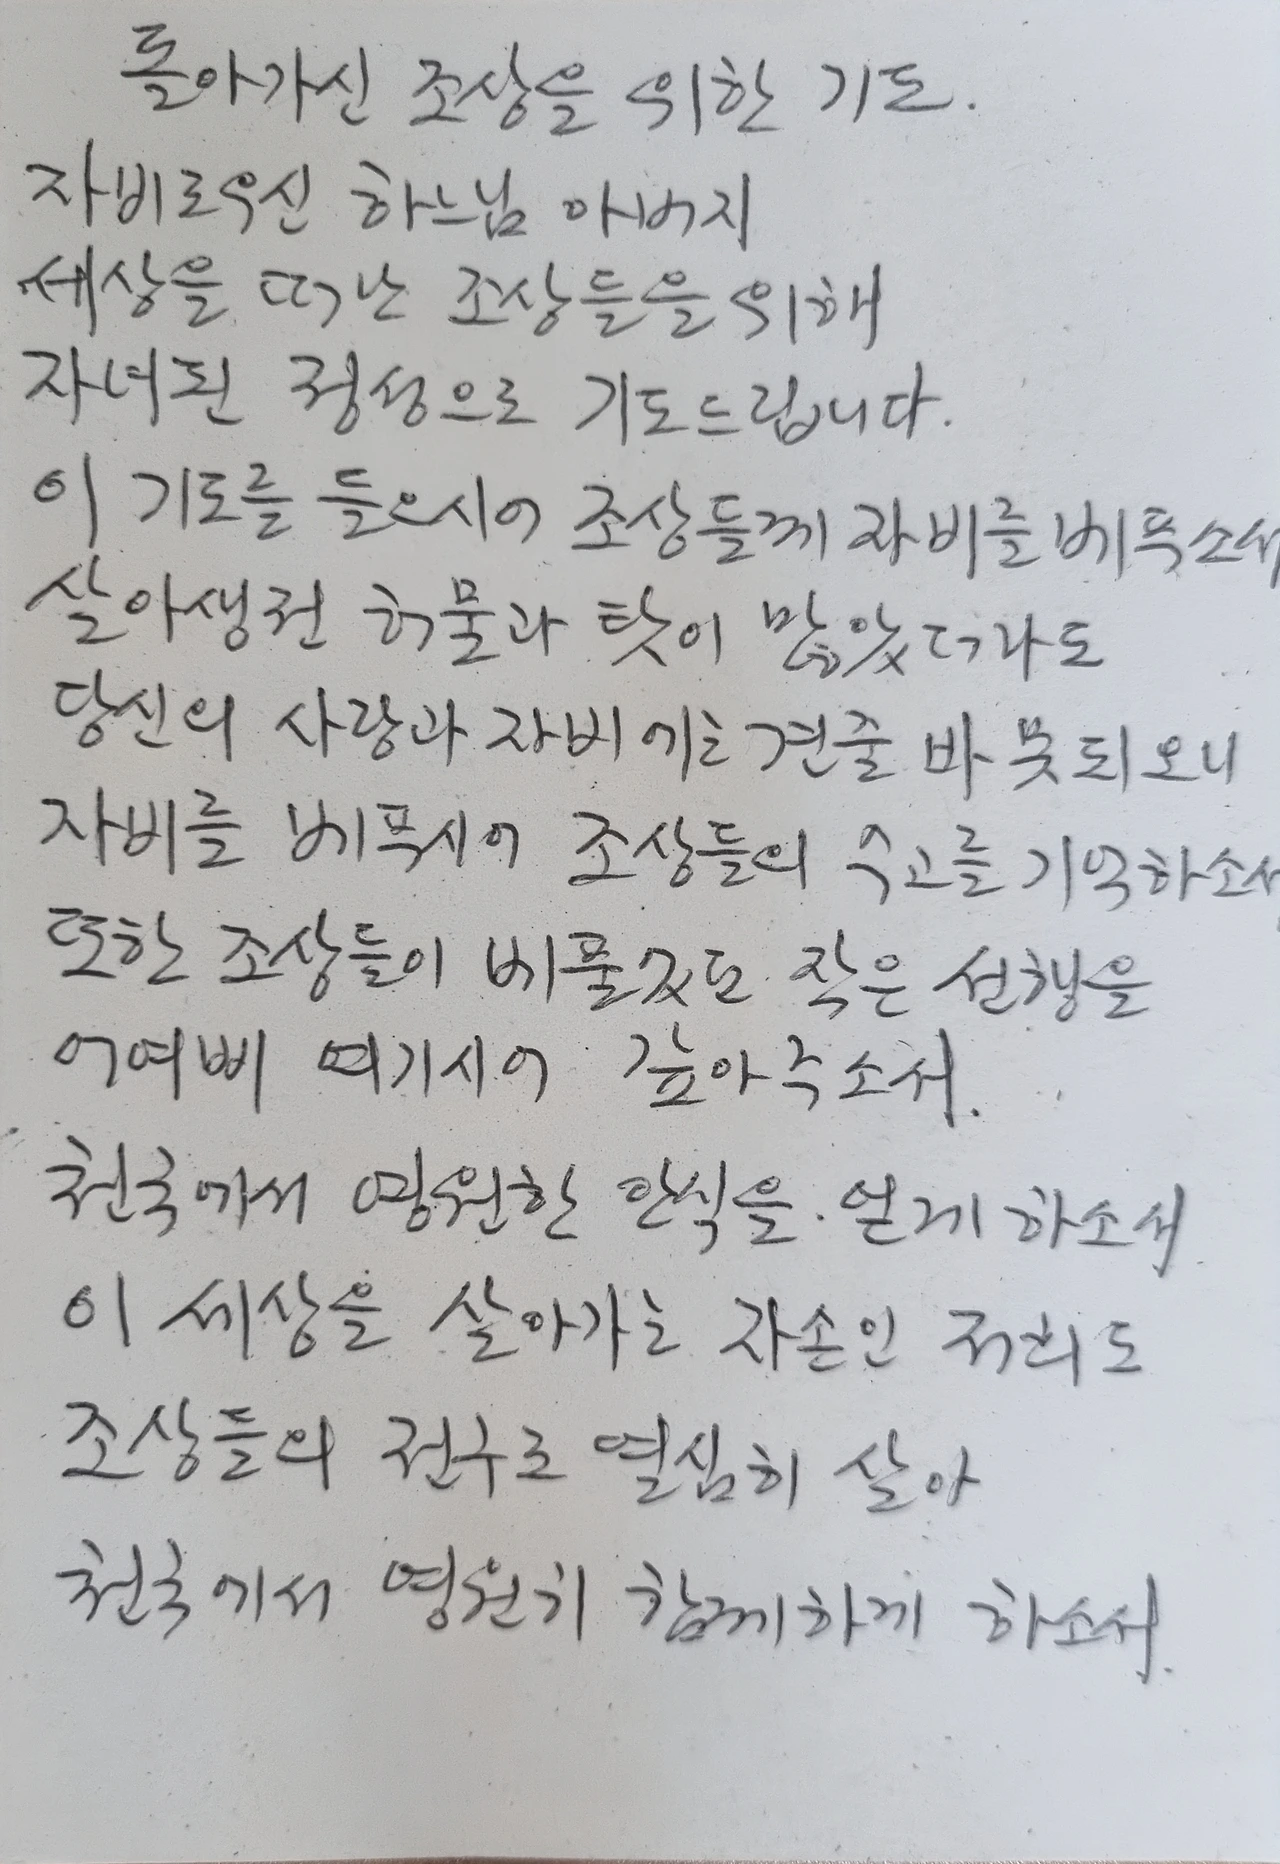 돌아가신 조상을 위한 기도.
자비로우신 하느님 아버지
세상을 떠난 조상들을 위해
자녀된 정성으로 기도드립니다.
이 기도를 들으시어 조상들께 자비를 베푹소서
살아생전 허물과 탓이 많았더라도
당신의 사랑과 자비에는 견줄 바 못되오니
자비를 베푹시어 조상들의 수고를 기억하소서
또한 조상들이 베풀었도 작은 선행을
어여삐 여기시어 갚아주소서.
천국에서 영원한 안식을 얻게 하소서
이 세상을 살아가는 자손인 저희도
조상들의 전구로 열심히 살아
천국에서 영원히 함께하게 하소서.